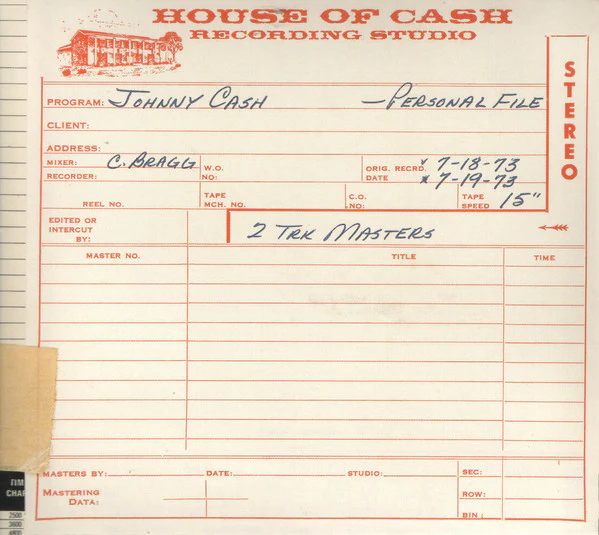 HOUSE OF CASH
RECORDING STUDIO
STEREO
PROGRAM: JOHNNY CASH —PERSONAL FILE
CLIENT:
ADDRESS:
MIXER: C. BRAGG W.O. NO: ORIG. RECRD. DATE 7-18-73
RECORDER: 7-19-73
REEL NO. TAPE MCH. NO. C.O. NO: TAPE SPEED 15"
EDITED OR INTERCUT BY: 2 TRK MASTERS
MASTER NO. TITLE TIME
MASTERS BY: DATE: STUDIO: SEC:
MASTERING DATA: ROW:
BIN:
TIM
CHAR
2500
3600
4800